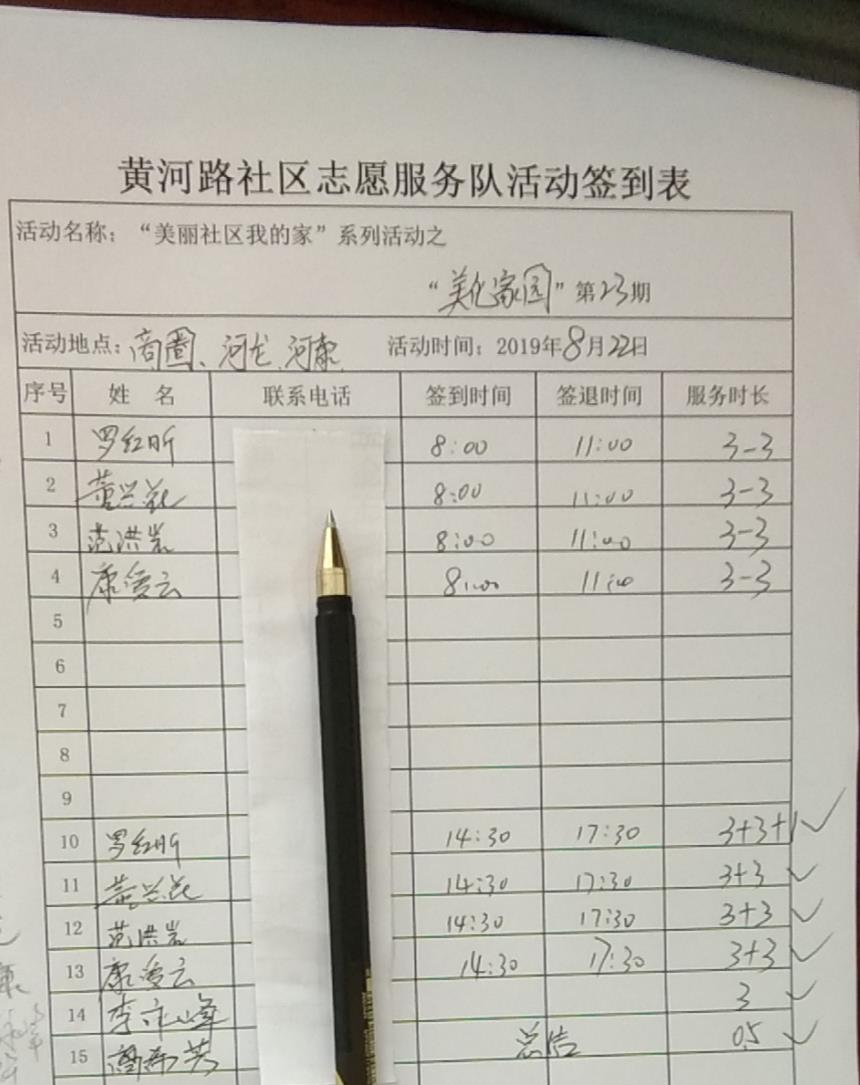 黄河路社区志愿服务队活动签到表
活动名称：“美丽社区我的家”系列活动之
“美化家园”第23期
活动地点：商圈、河龙、河康 活动时间：2019年8月22日
序号 姓名 联系电话 签到时间 签退时间 服务时长
1 罗红昕 8:00 11:00 3-3
2 董兴花 8:00 11:00 3-3
3 范洪岩 8:00 11:00 3-3
4 康爱云 8:00 11:00 3-3
5
6
7
8
9
10 罗红昕 14:30 17:30 3+3+1
11 董兴花 14:30 17:30 3+3
12 范洪岩 14:30 17:30 3+3
13 康爱云 14:30 17:30 3+3
14 李永峰 3
15 总结 0.5